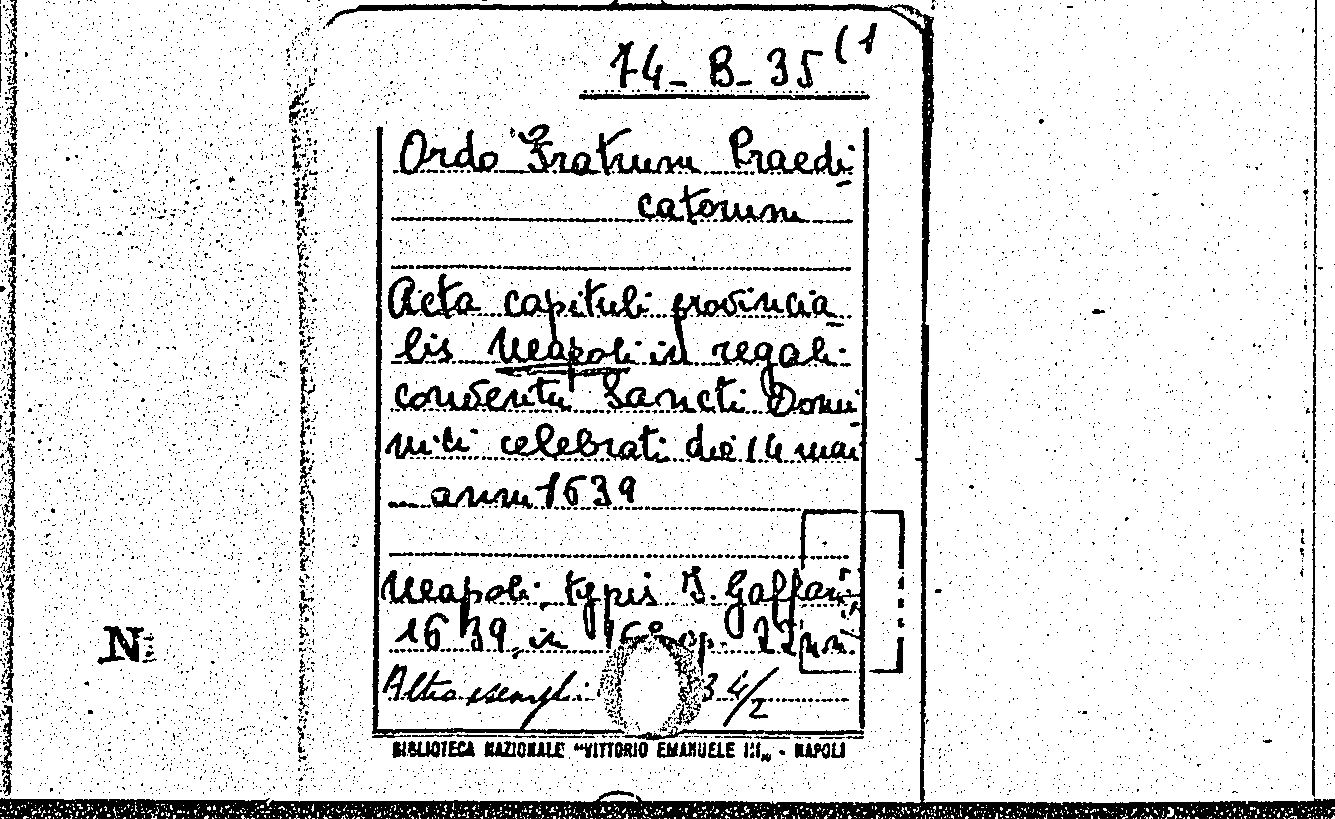 74-B-35 (1
Ordo Fratrum Praedi-
catorum
Acta capituli provincia-
lis Neapoli in regali
conventu Sancti Domi-
nici celebrati die 14 mai
anni 1639
Neapoli, typis J. Gaffari
1639, in 16° cp. 22 nn.
Altro esempl. 34/2
N:
BIBLIOTECA NAZIONALE "VITTORIO EMANUELE III„ - NAPOLI